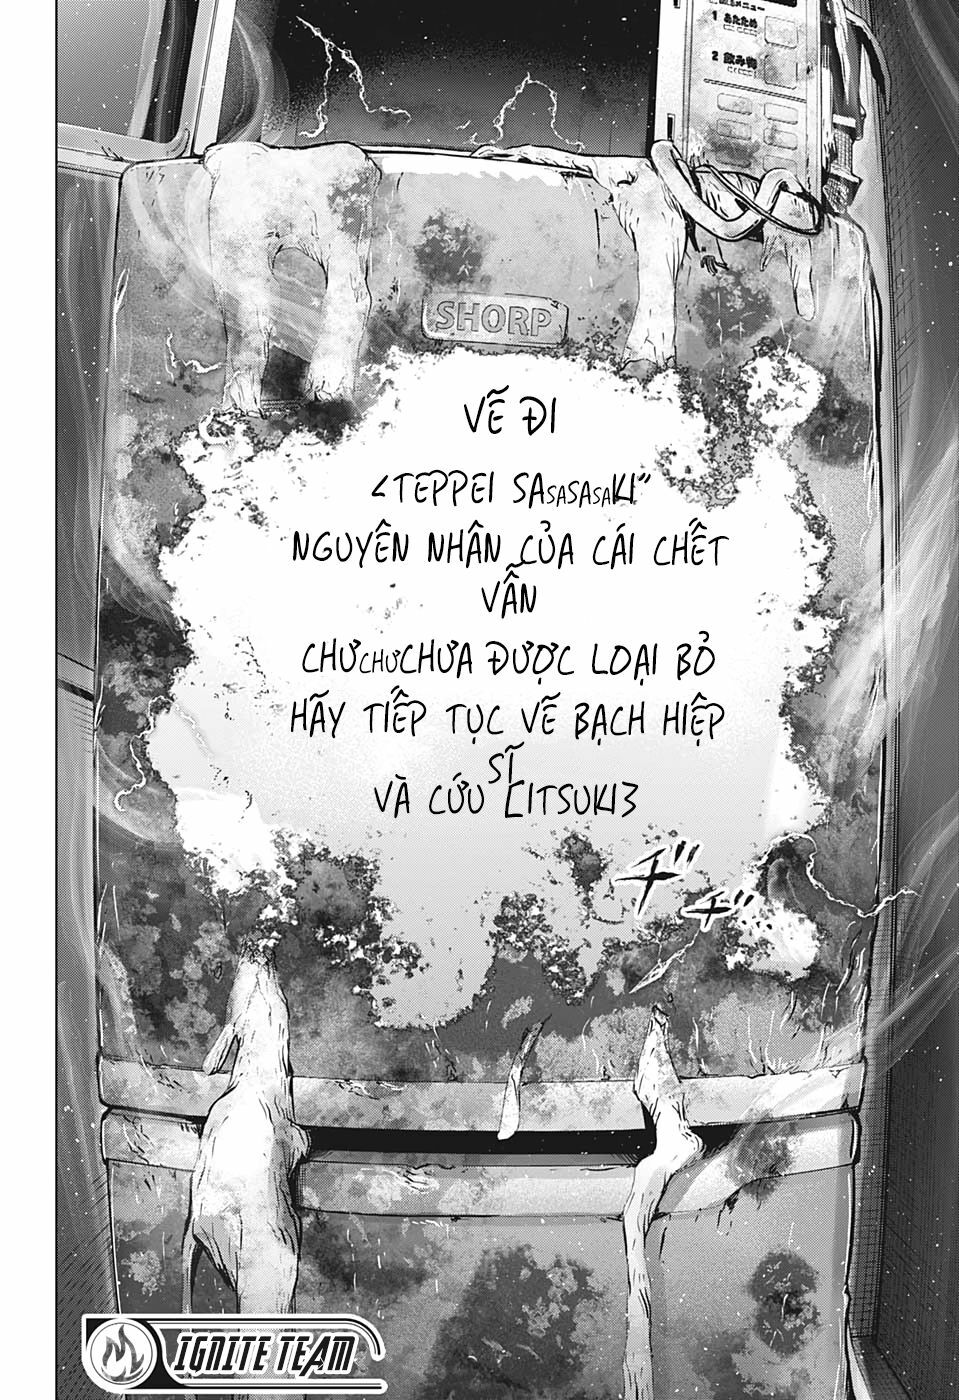 1 あたため
2 飲み物
SHORP
VẼ ĐI
<TEPPEI SASASASAKI"
NGUYÊN NHÂN CỦA CÁI CHẾT
VẪN
CHƯCHƯCHƯA ĐƯỢC LOẠI BỎ
HÃY TIẾP TỤC VẼ BẠCH HIỆP
SĨ
VÀ CỨU [ITSUKI3
ヂ"
ヂヂ...
IGNITE TEAM